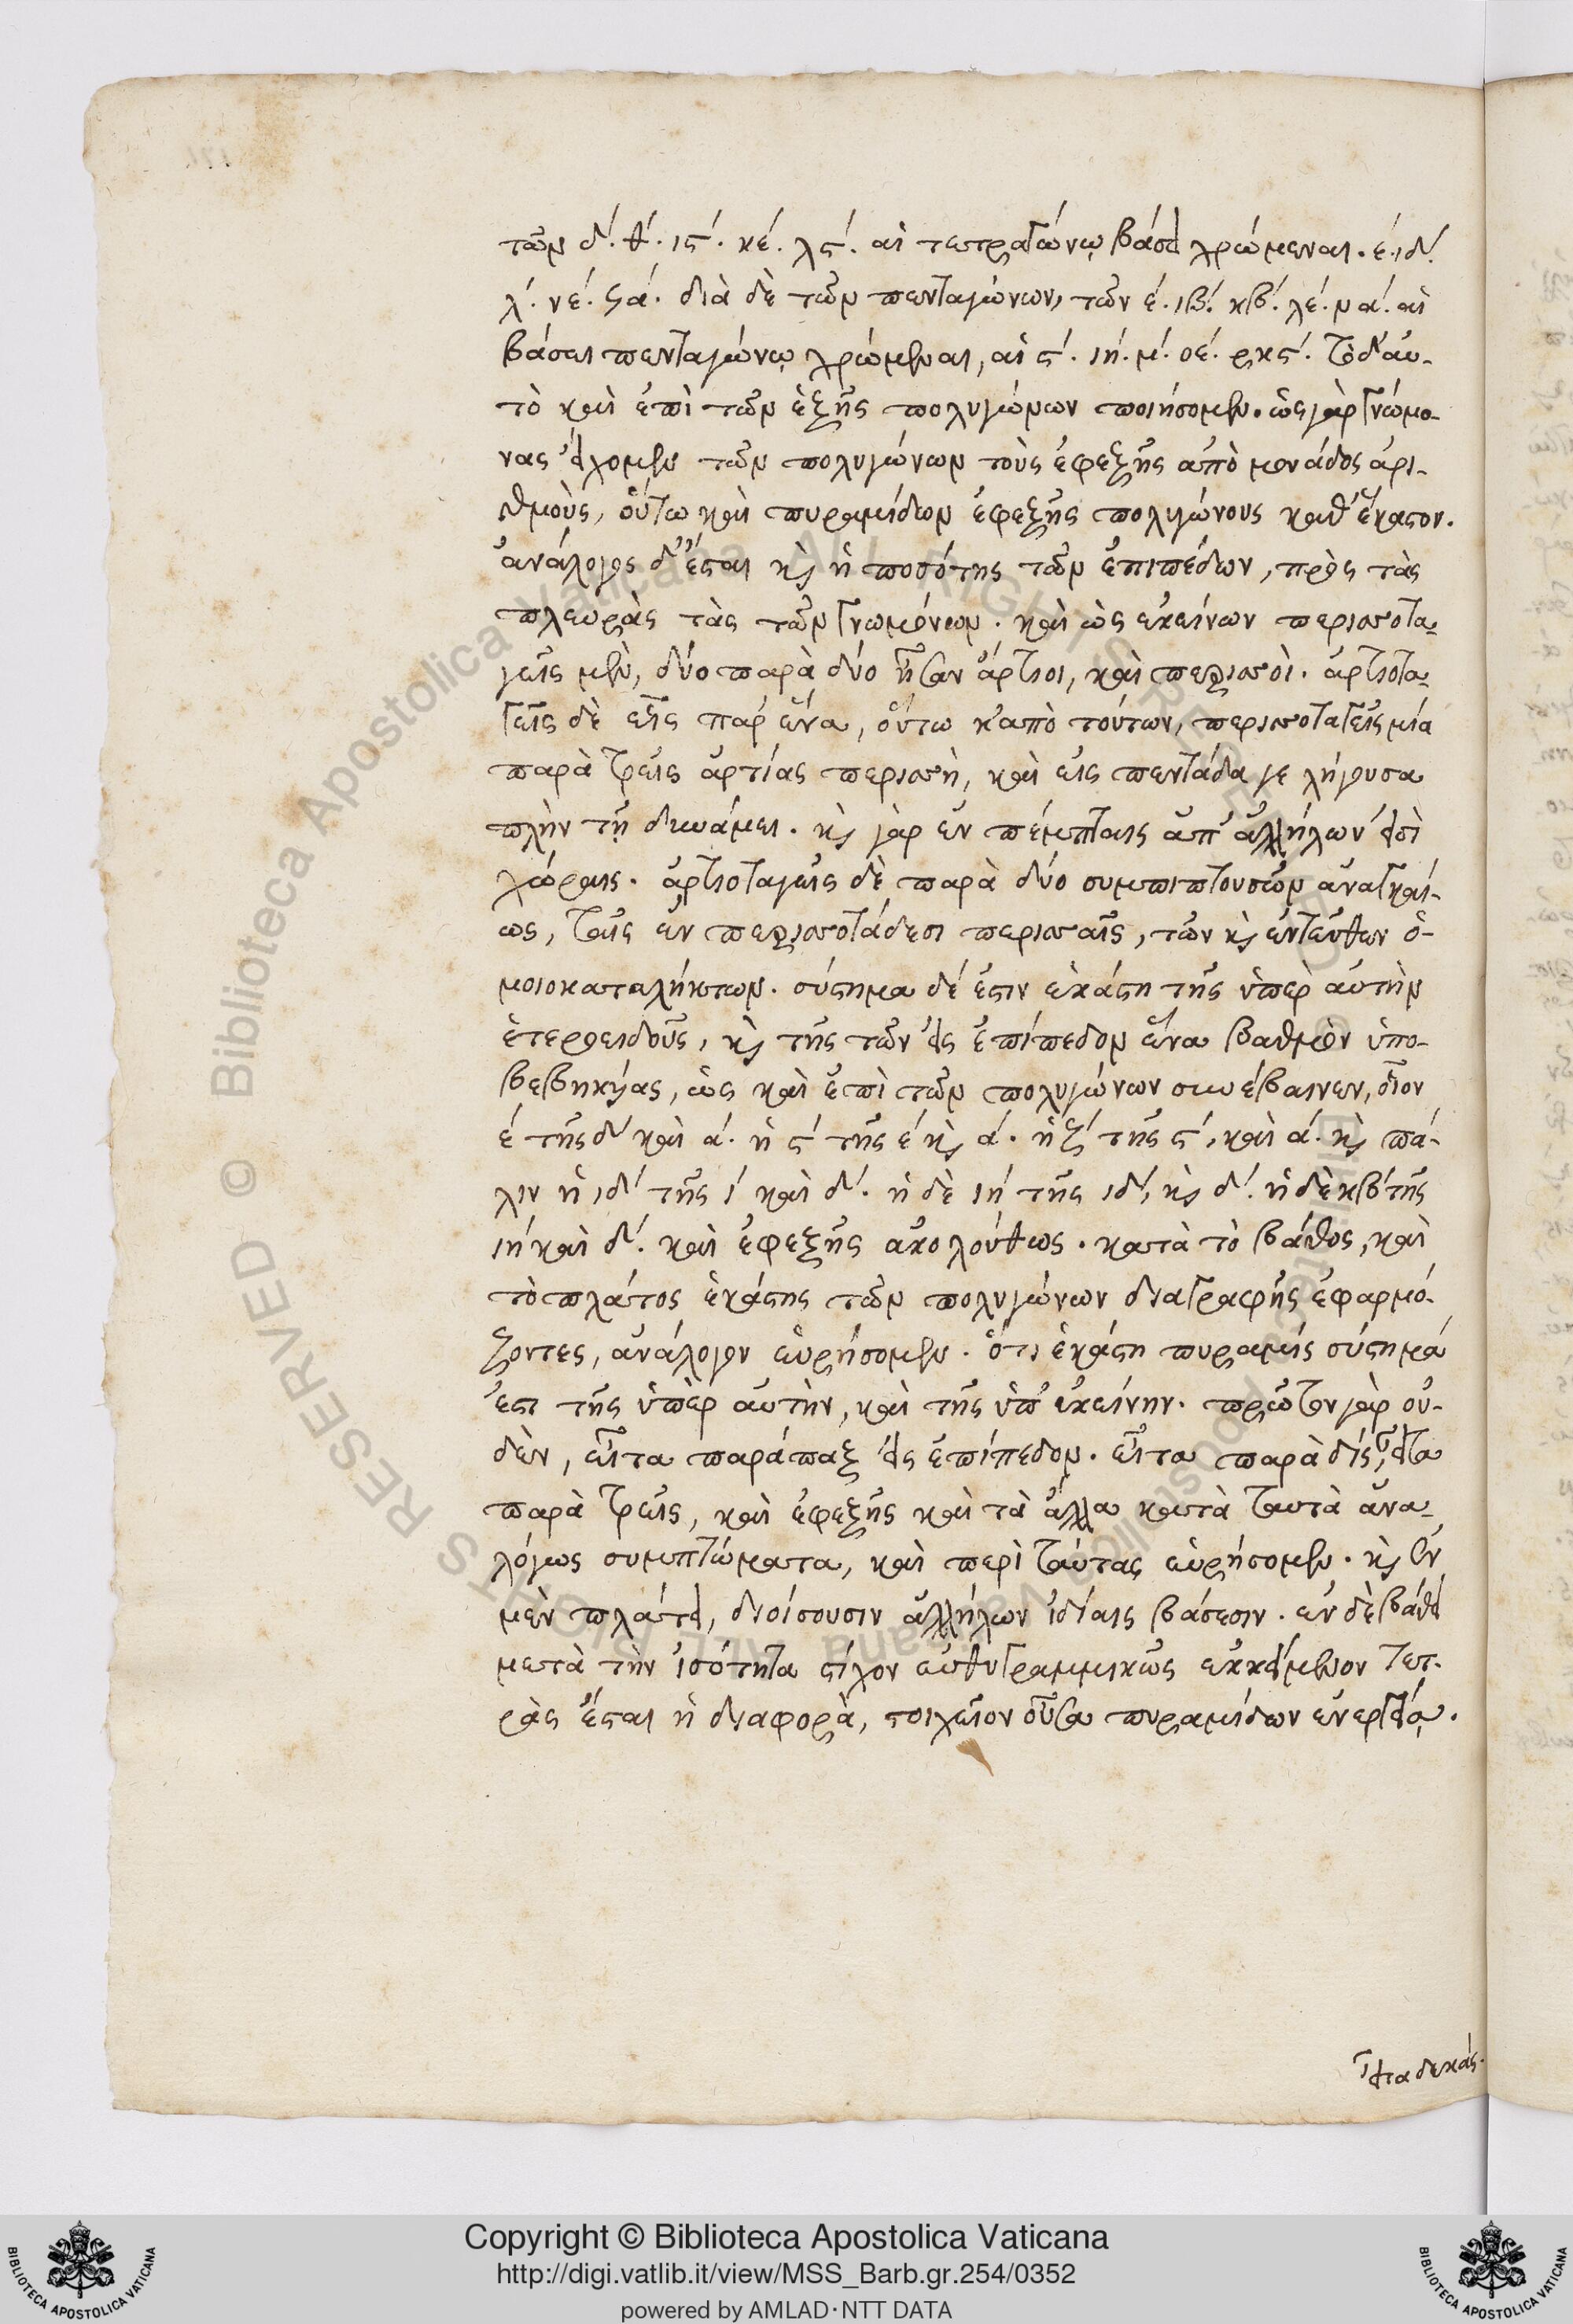 τῶν δʹ. θʹ. ιϛʹ. κέ. λϛʹ. αἱ τετραγώνῳ βάσει χρώμεναι. έ. ιδʹ.
λʹ. νέ. ϟά. διὰ δὲ τῶν πενταγώνων, τῶν έ. ιβʹ. κβʹ. λέ. νά. αἱ
βάσει πενταγώνῳ χρώμεναι, αἱ ϛʹ. ιή. μʹ. οέ. ρκϛʹ. τὸ δ' αὐ-
τὸ καὶ ἐπὶ τῶν ἑξῆς πολυγώνων ποιήσομεν. ὡς γὰρ γνώμο-
νας εἴχομεν τῶν πολυγώνων τοὺς ἐφεξῆς ἀπὸ μονάδος ἀρι-
θμοὺς, οὕτω καὶ πυραμίδων ἐφεξῆς πολυγώνους καθ' ἕκαστον.
ἀνάλογος δ' ἔσται καὶ ἡ ποσότης τῶν ἐπιπέδων, πρὸς τὰς
πλευρὰς τὰς τῶν γνωμόνων. καὶ ὡς ἐκείνων περισσοτα-
γεῖς μὲν, δύο παρὰ δύο ἦσαν ἄρτιοι, καὶ περισσοὶ. ἀρτιοτα-
γεῖς δὲ εἷς παρ' ἕνα, οὕτω κἀπὸ τούτων, περισσοταγεῖς μία
παρὰ τρεῖς ἀρτίας περισσὴ, καὶ εἰς πεντάδα γε λήγουσα
πλὴν τῇ δυνάμει. καὶ γὰρ ἐν πέμπταις ἀπ' ἀλλήλων εἰσὶ
χώραις. ἀρτιοταγεῖς δὲ παρὰ δύο συμπιπτουσῶν ἀναγκαί-
ως, ταῖς ἐν περισσοτάδεσι περισσαῖς, τῶν καὶ ἐντεῦθεν ὁ-
μοιοκαταλήκτων. σύστημα δέ ἐστιν ἑκάστη τῆς ὑπὲρ αὐτὴν
ἑτεροειδοῦς, καὶ τῆς τῶν εἰς ἐπίπεδον ἕνα βαθμὸν ὑπο-
βεβηκυίας, ὡς καὶ ἐπὶ τῶν πολυγώνων συνέβαινεν, οἷον
έ τῆς δʹ καὶ ά. ἡ ϛʹ τῆς έ καὶ ά. ἡ ζʹ τῆς ϛʹ, καὶ ά. καὶ πά-
λιν ἡ ιδʹ τῆς ίʹ καὶ δʹ. ἡ δὲ ιή τῆς ιδʹ, καὶ δʹ. ἡ δὲ κβʹ τῆς
ιή καὶ δʹ. καὶ ἐφεξῆς ἀκολούθως. κατὰ τὸ βάθος, καὶ
τὸ πλάτος ἑκάστης τῶν πολυγώνων διαγραφῆς ἐφαρμό-
ζοντες, ἀνάλογον εὑρήσομεν. ὅτι ἑκάστη πυραμὶς σύστημά
ἐστι τῆς ὑπὲρ αὐτὴν, καὶ τῆς ὑπ' ἐκείνην. πρῶτον γὰρ οὐ-
δὲν, εἶτα παράπαξ εἰς ἐπίπεδον. εἶτα παρὰ δὶς, εἶτα
παρὰ τρεῖς, καὶ ἐφεξῆς καὶ τὰ ἄλλα κατὰ ταυτὰ ἀνα-
λόγως συμπτώματα, καὶ περὶ ταύτας εὑρήσομεν. καὶ ἐν
μὲν πλάτει, διοίσουσιν ἀλλήλων ἰδίαις βάσεσιν. ἐν δὲ βάθει
μετὰ τὴν ἰσότητα στίχον εὐθυγραμμικῶς ἐκκείμενον τετ-
ρὰς ἔσται ἡ διαφορὰ, στοιχεῖον οὖσα πυραμίδων ἐνεργείᾳ.
ἡ εἶτα δεκάς.